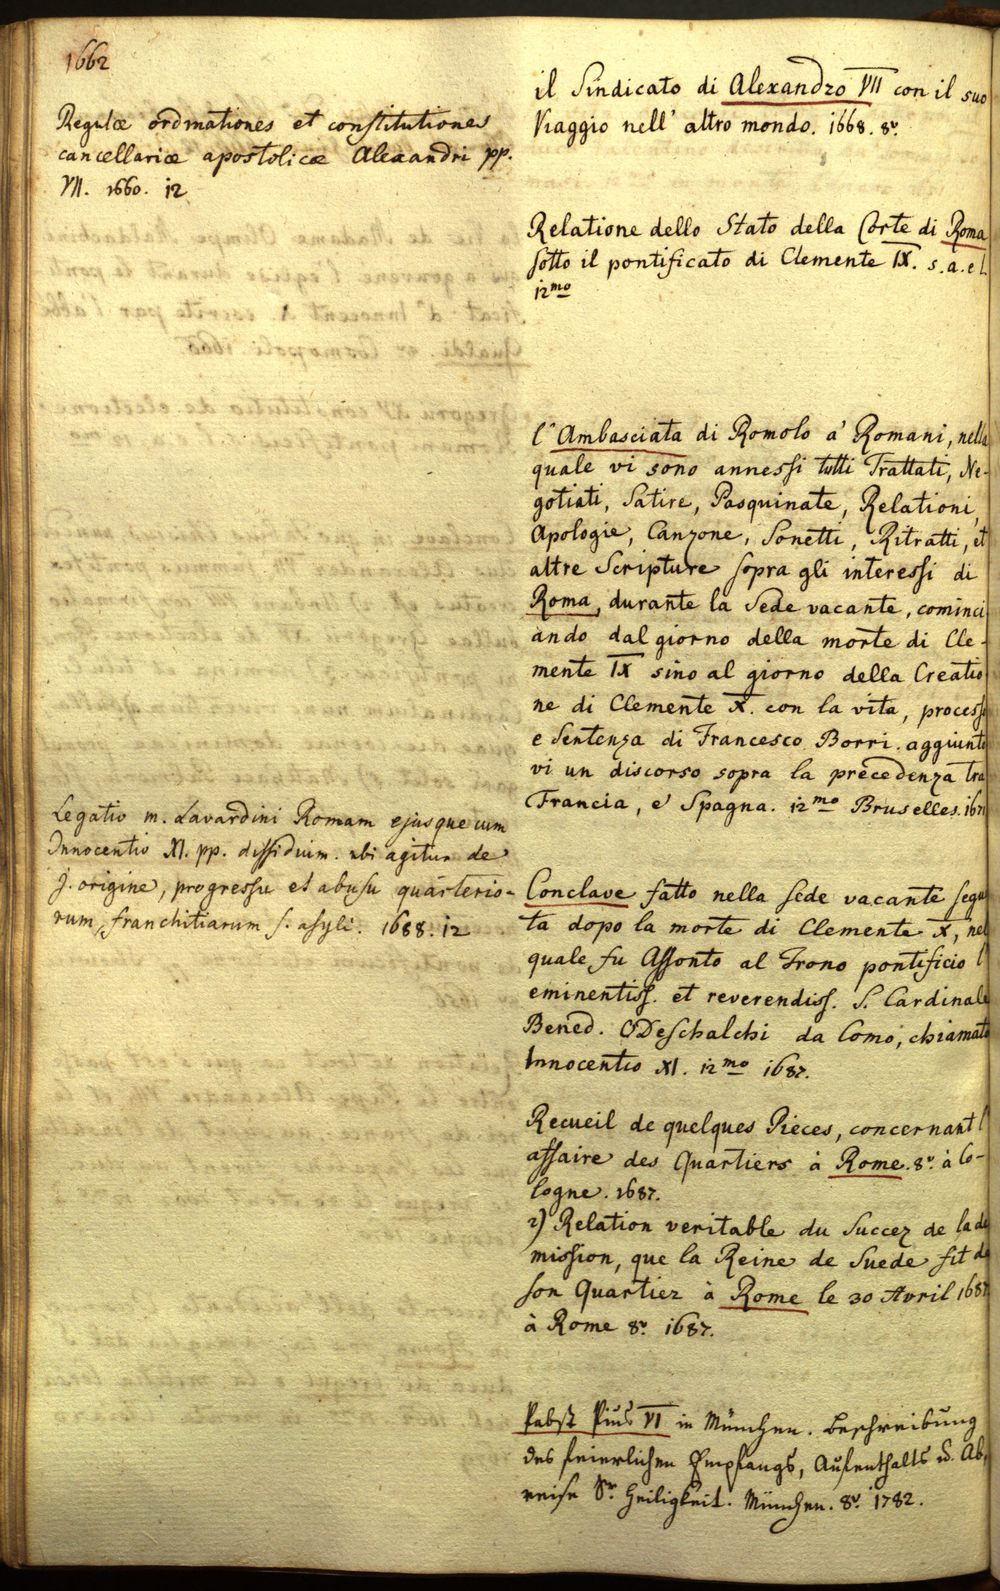 1662
Regulæ ordinationes et constitutiones
cancellariæ apostolicæ Alexandri pp.
VII. 1660. 12
Legatio m. Lavardini Romam ejusque cum
Innocentio XI. pp. dissidium. ubi agitur de
j. origine, progressu et abusu quarterio-
rum, franchitiarum s. asyli. 1688. 12
il Sindicato di Alexandro VII con il suo
Viaggio nell' altro mondo. 1668. 8º.
Relatione dello Stato della Corte di Roma
sotto il pontificato di Clemente IX. s. a. e l.
12mo
l'Ambasciata di Romolo a' Romani, nella
quale vi sono annessi tutti Trattati, Ne-
gotiati, Satire, Pasquinate, Relationi,
Apologie, Canzone, Sonetti, Ritratti, et
altre Scripture sopra gli interessi di
Roma, durante la Sede vacante, cominci
ando dal giorno della morte di Cle-
mente IX sino al giorno della Creatio
ne di Clemente X. con la vita, processo
e Sentenza di Francesco Borri. aggiunto
vi un discorso sopra la precedenza tra
Francia, e Spagna. 12mo Bruselles. 1671
Conclave fatto nella sede vacante segu
ta dopo la morte di Clemente X, nel
quale fu Assonto al Trono pontificio l
eminentiss. et reverendiss. S. Cardinale
Bened. ODeschalchi da Como, chiamato
Innocentio XI. 12mo 1687.
Recueil de quelques Pieces, concernant l
affaire des Quartiers à Rome. 8º. à Co-
logne. 1687.
2) Relation veritable du Succez de la de
mission, que la Reine de Suede fit de
son Quartier à Rome le 30 Avril 1687
à Rome 8º. 1687.
Pabst Pius VI in München. Beschreibung
des feierlichen Empfangs, Aufenthalts u. Ab,
reise Sr. Heiligkeit. München. 8º. 1782.